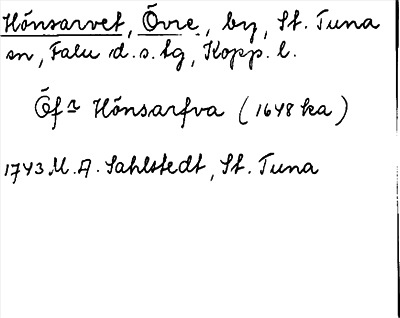 Hönsarvet, Övre, by, St. Tuna
sn, Falu d.s. tg, Kopp. l.
Öfr Hönsarfva (1648 ka)
1743 M. A. Sahlstedt, St. Tuna